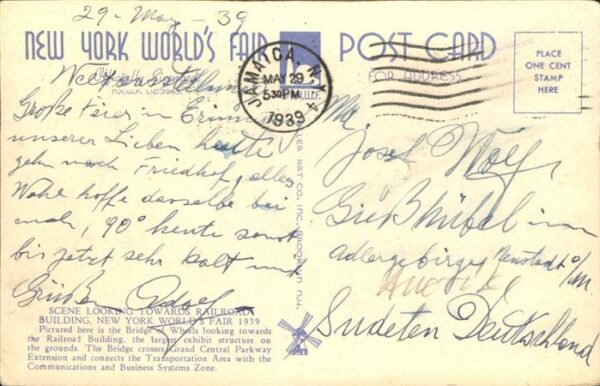 29 - May - 39
NEW YORK WORLD'S FAIR
POST CARD
FOR ADDRESS
PLACE
ONE CENT
STAMP
HERE
JAMAICA N.Y. 4
MAY 29
5 30 PM
1939
Große Feier in
unserer Lieben heute
gehn nach Friedhof, alles
Wohl hoffe dasselbe bei
euch, 90° heute sonst
bis jetzt sehr kalt mit
Grüßen Adolf
Mr
Josef Wolf
Gießhübel im
Adlergebirge Neustadt o/m
Sudeten Deutschland
ART CO. INC. BROOKLYN, N.Y.
SCENE LOOKING TOWARDS RAILROAD
BUILDING, NEW YORK WORLD'S FAIR 1939
Pictured here is the Bridge of Wheels looking towards
the Railroad Building, the largest exhibit structure on
the grounds. The Bridge crosses Grand Central Parkway
Extension and connects the Transportation Area with the
Communications and Business Systems Zone.